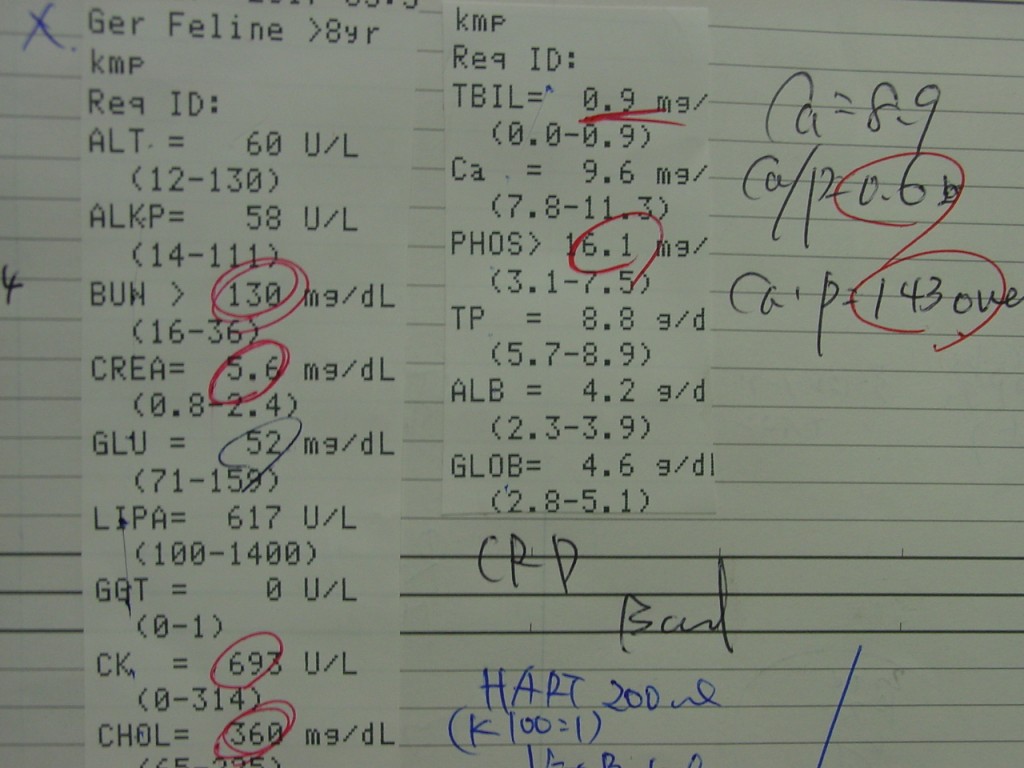 Ger Feline >8yr
kmp
Req ID:
ALT = 60 U/L
(12-130)
ALKP= 58 U/L
(14-111)
4
BUN > 130 mg/dL
(16-36)
CREA= 5.6 mg/dL
(0.8-2.4)
GLU = 52 mg/dL
(71-159)
LIPA= 617 U/L
(100-1400)
GGT = 0 U/L
(0-1)
CK = 693 U/L
(0-314)
CHOL= 360 mg/dL
kmp
Req ID:
TBIL= 0.9 mg/
(0.0-0.9)
Ca = 9.6 mg/
(7.8-11.3)
PHOS> 16.1 mg/
(3.1-7.5)
TP = 8.8 g/d
(5.7-8.9)
ALB = 4.2 g/d
(2.3-3.9)
GLOB= 4.6 g/dl
(2.8-5.1)
Ca=8.9
Ca/P=0.6
Ca·P=143 ove
CRP
Bad
HART 200
(K 100=1)